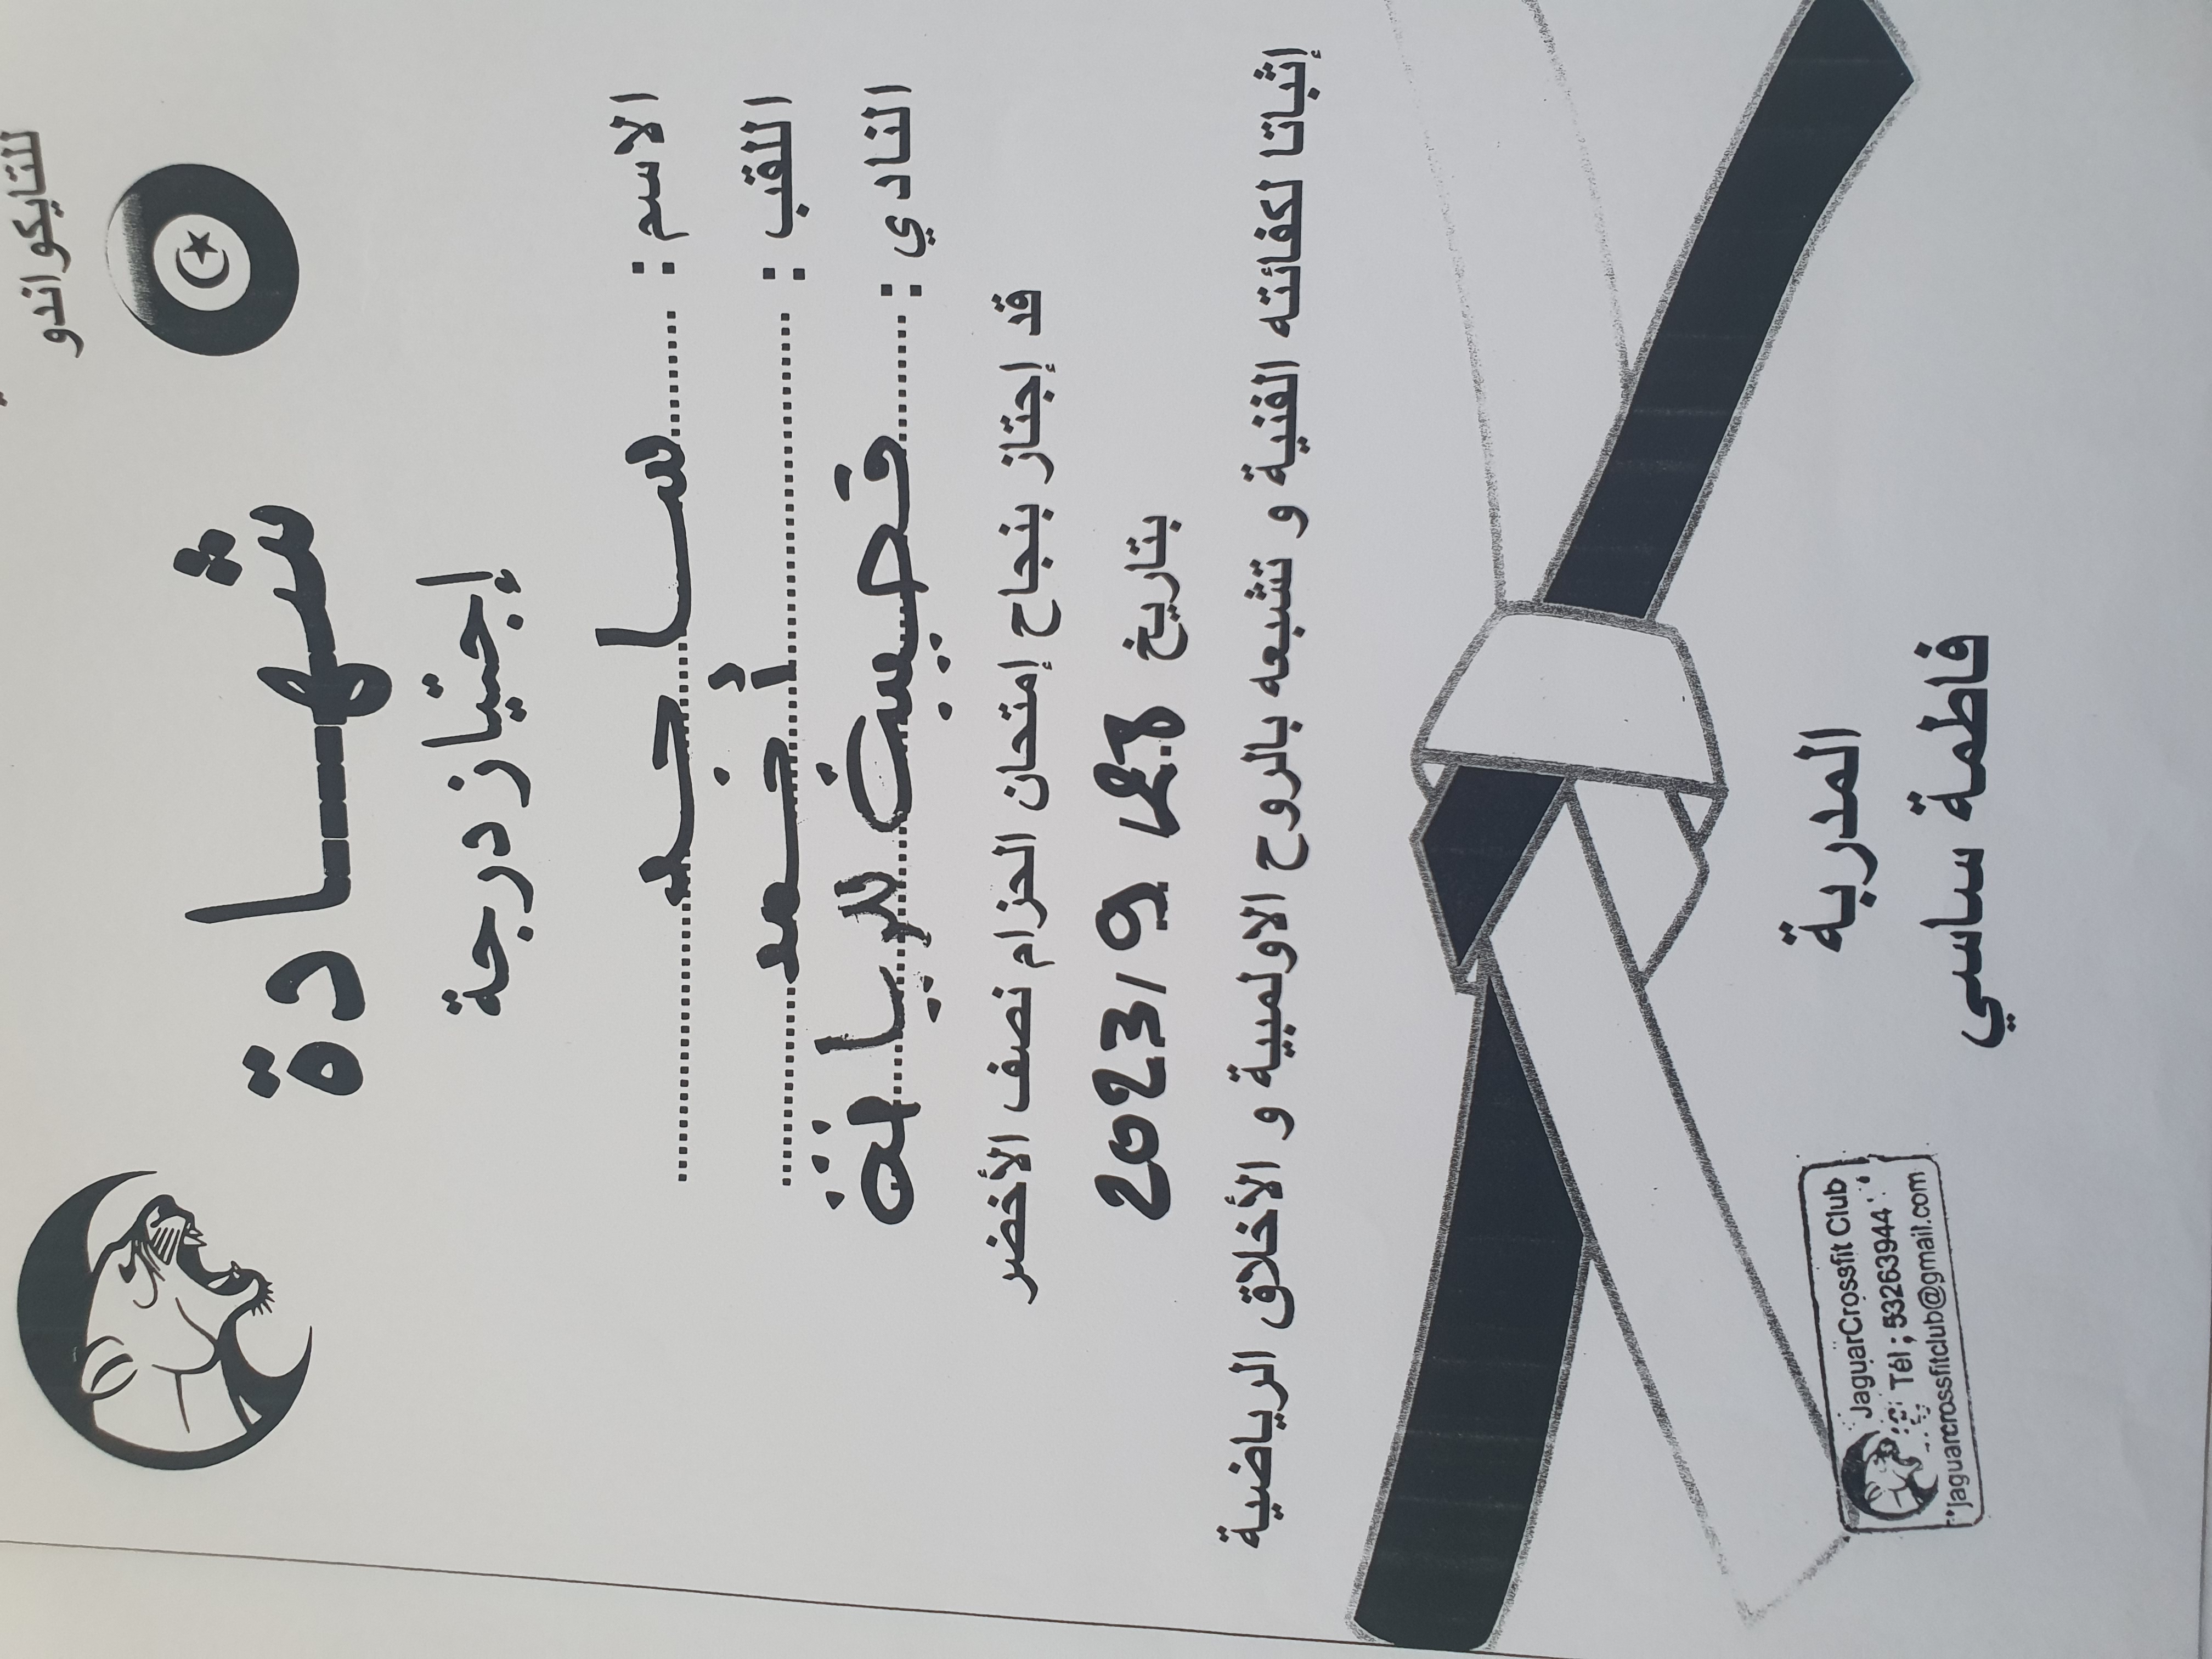 للتايكواندو
شهادة
إجتياز درجة
الاسم : ساجد
اللقب : أحمد
النادي : قصيبة المديوني للرياضة
قد إجتاز بنجاح إمتحان الحزام نصف الأخضر
بتاريخ 2023/9
إثباتا لكفائته الفنية و تشبعه بالروح الاولمبية و الأخلاق الرياضية
المدربة
فاطمة ساسي
JaguarCrossfit Club
Tél ; 53263944
jaguarcrossfitclub@gmail.com